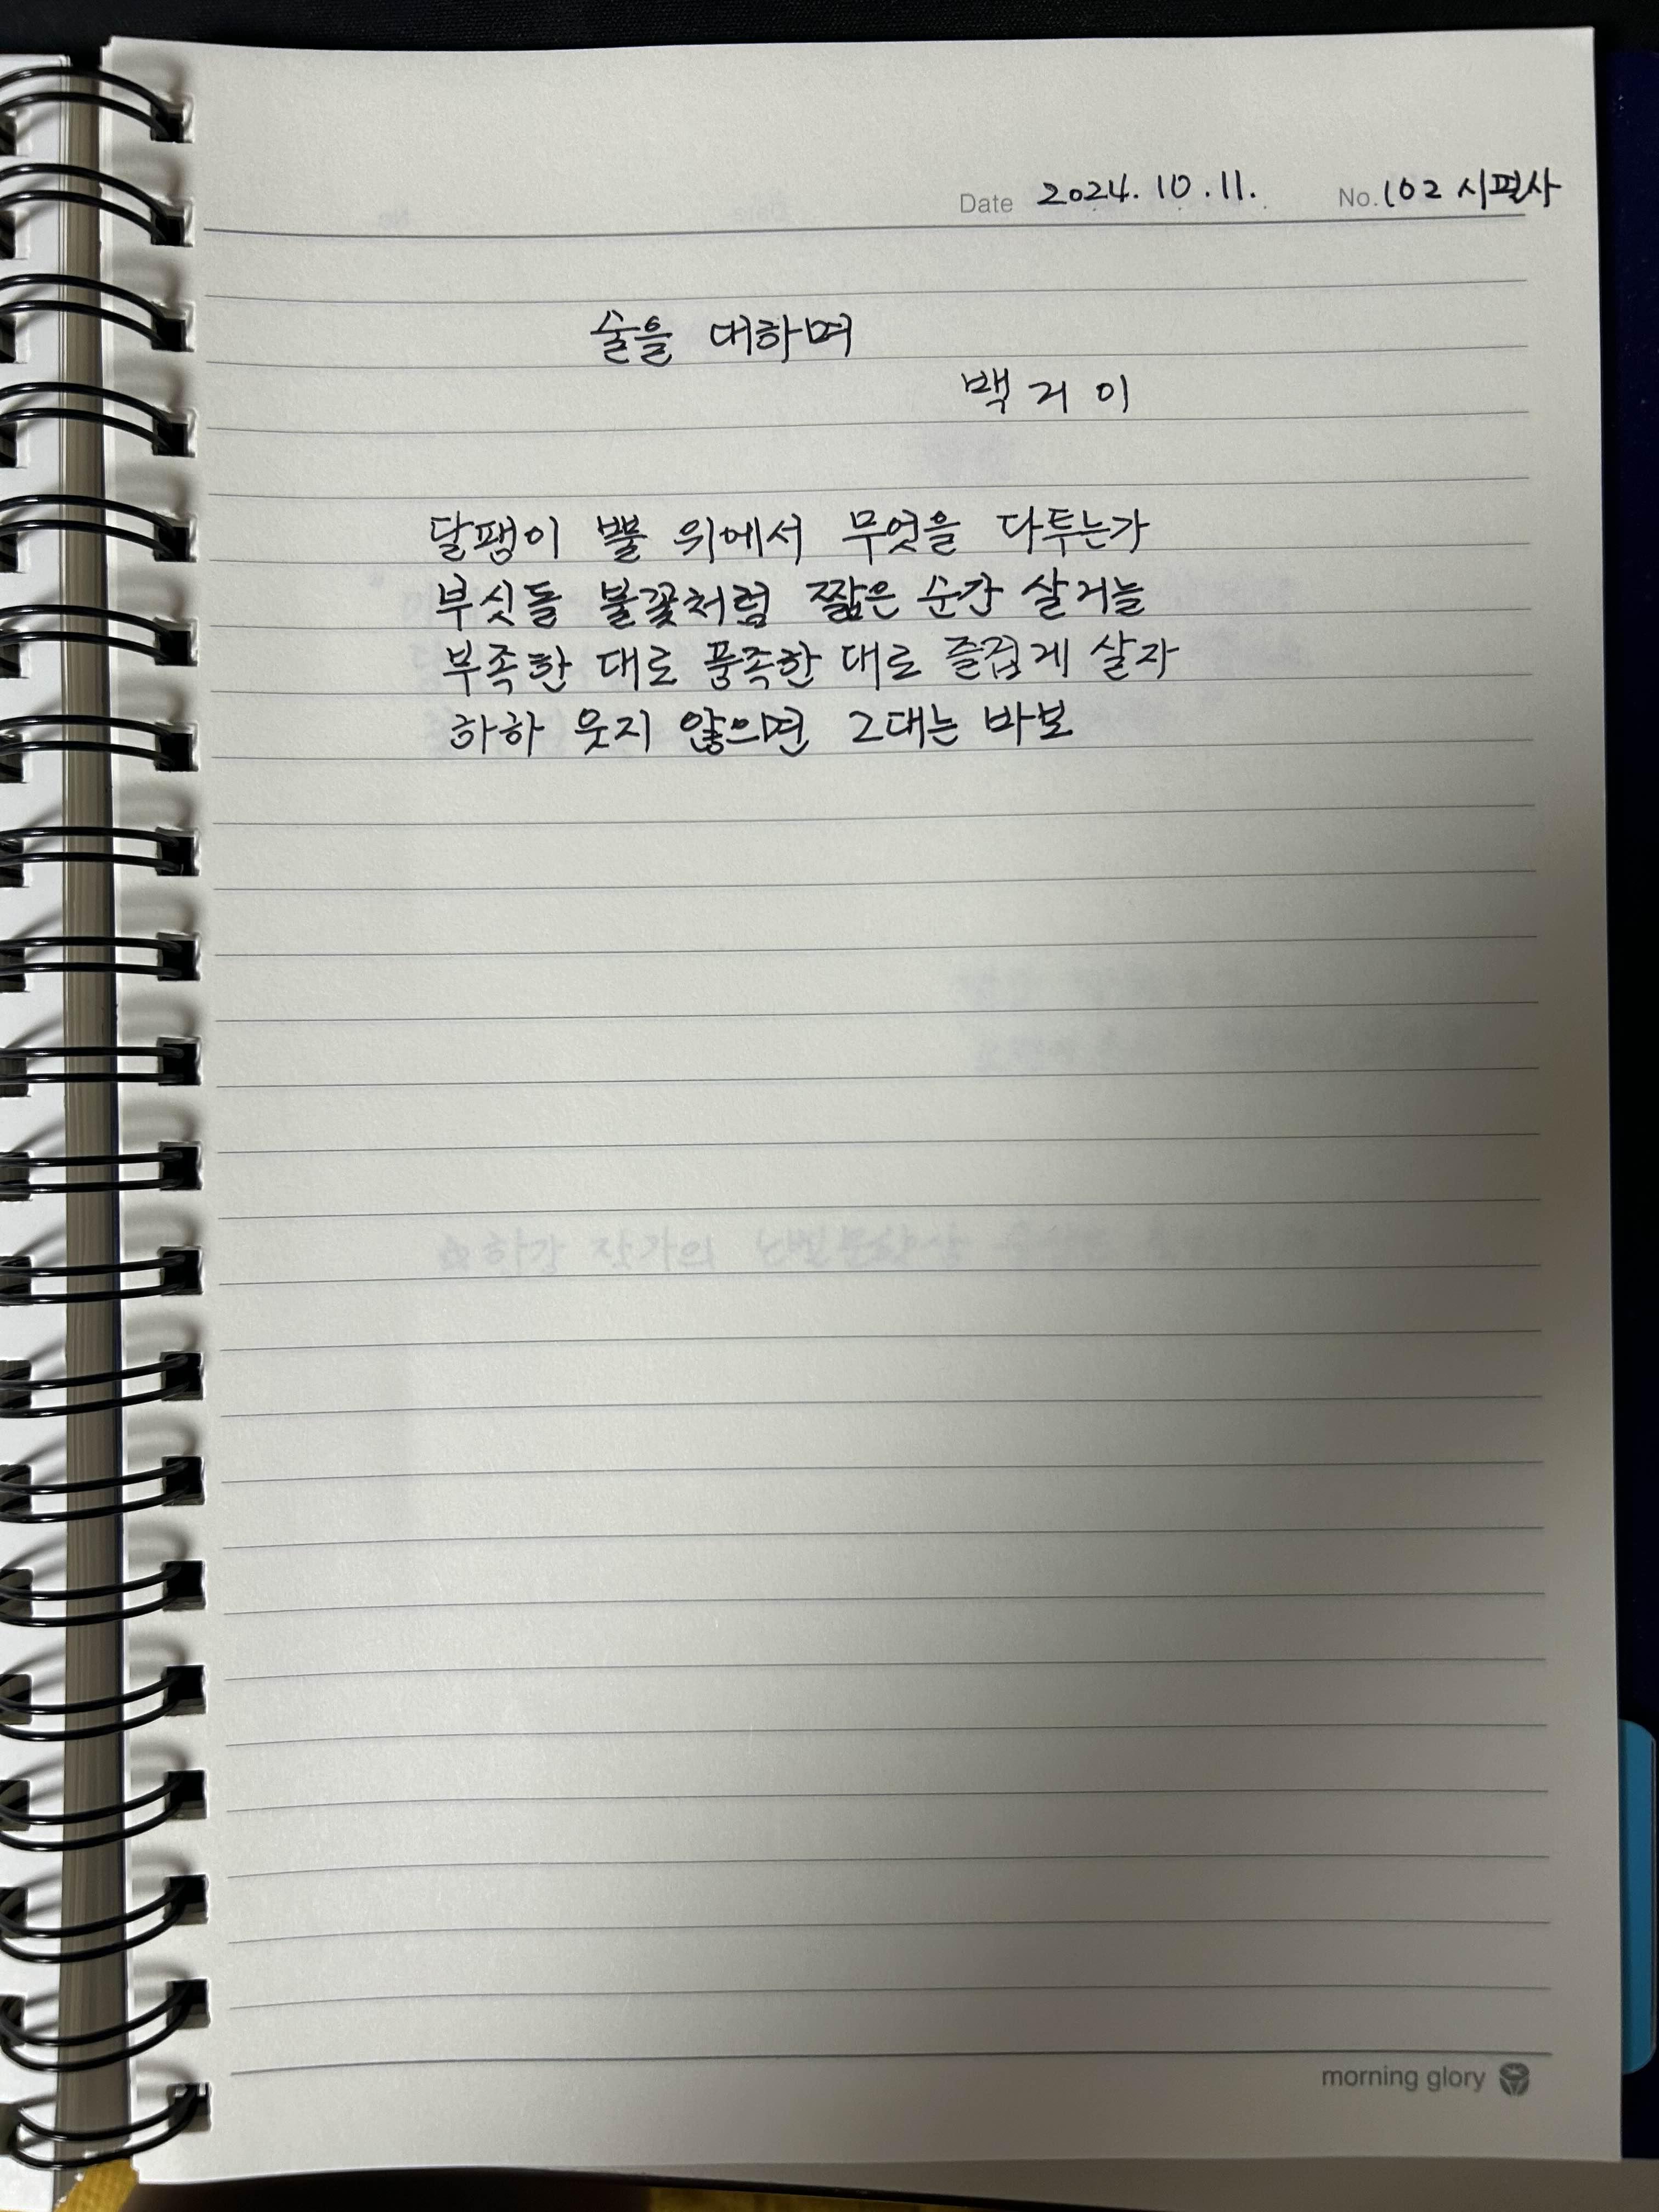 Date 2024. 10. 11. No. 102 시필사
술을 대하며
백거이
달팽이 뿔 위에서 무엇을 다투는가
부싯돌 불꽃처럼 짧은 순간 살거늘
부족한 대로 풍족한 대로 즐겁게 살자
하하 웃지 않으면 그대는 바보
morning glory